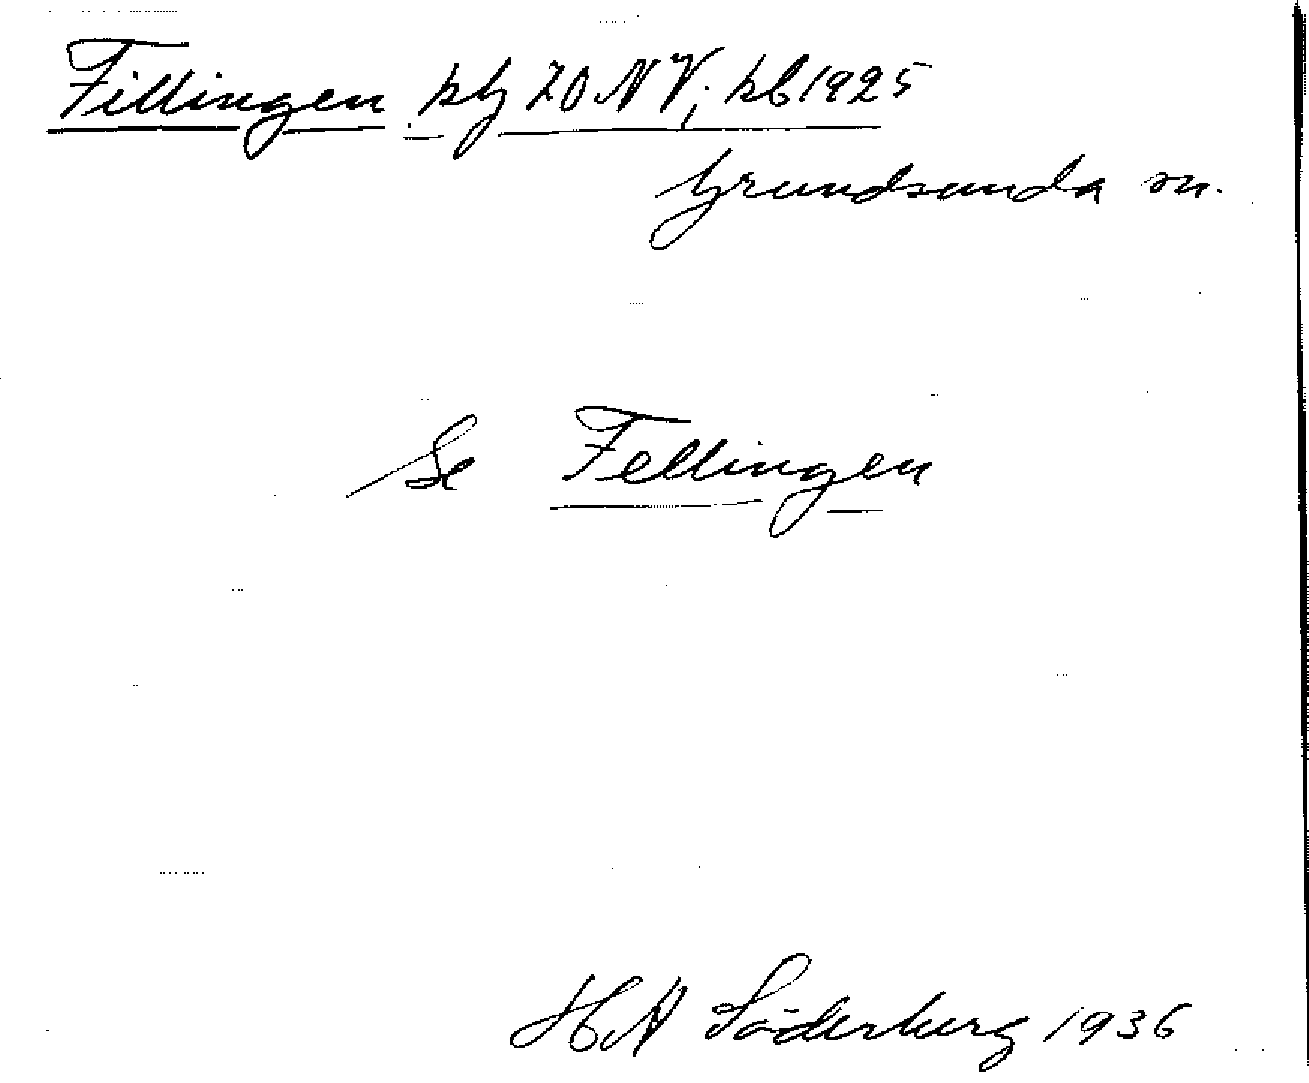 Fillingen kbl 20 NV; kb 1925
Grundsunda sn.
Se Fellingen
H A Söderberg 1936